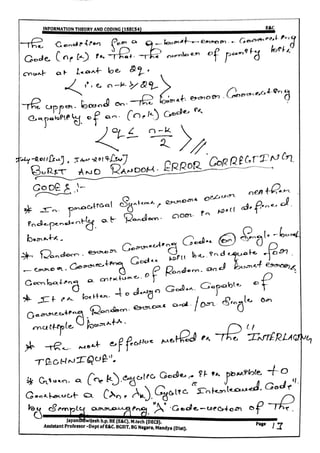 INFORMATION THEORY AND CODING (15EC54) E&C
The Condition for a q-burst-error-Correcting
Code (n,k) is That The number of parity bits
must at least be 2q.
i.e n-k ≥ 2q
The upper bound on The burst error Correcting
Capability of an (n,k) Code is
q ≤ n-k
2
BURST AND RANDOM ERROR CORRECTING
CODES :-
* In practical Systems, errors occur neither
independently, at Random nor in well defined
bursts.
* Random error Correcting Codes (or) Single-burst
-error. Correcting Codes will be inadequate for
Combating a mixture of Random and burst errors.
* It is better to design Codes Capable of
Correcting Random errors and /or Single or
multiple bursts.
* The most effective method is The "INTERLACING
TECHNIQUE".
* Given a (n,k) cyclic Code, it is possible to
Construct a (λn, λk) Cyclic "interleaved Code"
by Simply arranging "λ" Code-vectors of The
Assistant Professor -Dept of E&C. BGSIT, BG Nagara, Mandya (Dist). Page 17